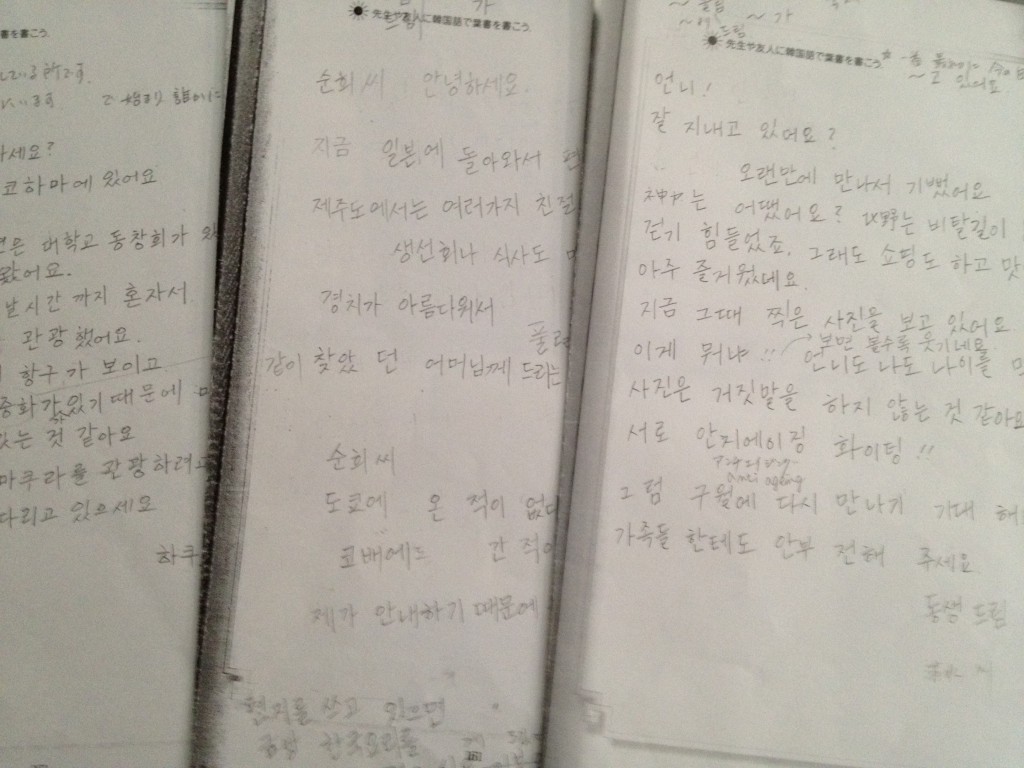 書を書こう.
하세요?
코하마에 있어요
은 대학교 동창회가
왔어요.
날시간 까지 혼자서
관광 했어요.
항구가 보이고
중화가 있기 때문에
있는 것 같아요
마쿠라를 관광하려고
다리고 있으세요
하쿠
가
드림
先生や友人に韓国語で葉書を書こう.
순희 씨 안녕하세요.
지금 일본에 돌아와서
제주도에서는 여러가지 친절
생선회나 식사도
경치가 아름다워서
같이 찾았 던 어머님께 드리는
순희 씨
도쿄에 온 적이 없
코배에도 간 적이
제가 안내하기 때문에
편지를 쓰고 있으면
한국요리를
161
~가
드림
先生や友人に韓国語で葉書を書こう.
~고 있어요
언니!
잘 지내고 있어요?
오랜만에 만나서 기뻤어요
神戸는 어땠어요? 는 비탈길이
걷기 힘들었죠. 그래도 쇼핑도 하고 맛
아주 즐거웠네요.
지금 그때 찍은 사진을 보고 있어요.
이게 뭐냐!! 보면 볼수록 웃기네요.
언니도 나도 나이를
사진은 거짓말을 하지 않는 것 같아요
서로 안지에이징 화이팅!!
그럼 구월에 다시 만나기 기대 해
가족들 한테도 안부 전해 주세요
동생 드림